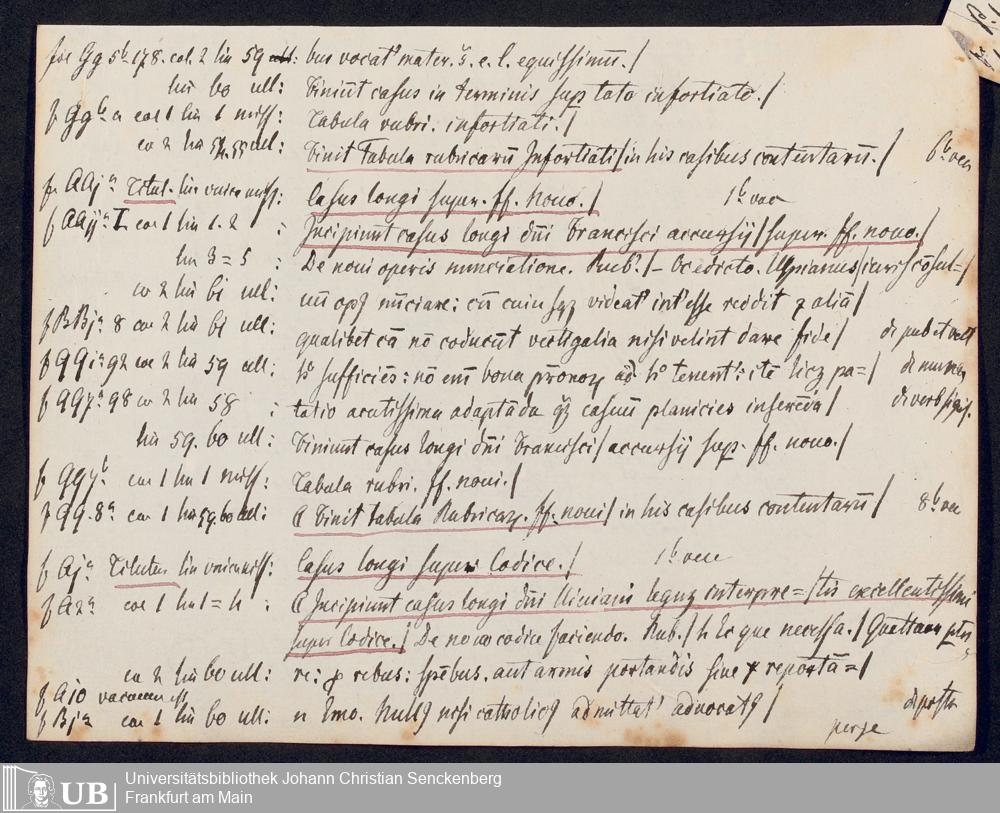 fol Gg 5b 178. col. 2 lin 59 : bus vocat' mater. s. e. l. equissimū. /
lin 60 ult: Finiūt casus in terminis sup toto infortiato. /
f Gg 6 a col 1 lin 1 miss: Tabula rubri. infortiati. /
co 2 lin 54. 55 ult: Finit Tabula rubricarū Infortiati / in his casibus contentarū. / 6b vac
f AAj a Titul. lin unica miss: Casus longi super. ff. Novo. / 1b vac
f AAij a I col 1 lin 1. 2 : Incipiunt casus longi dn̄i Francisci accursij / super. ff. novo. /
lin 3 = 5 : De novi operis nunciatione. Rub'. / Hoc edicto. Ulpianus iuriscōsul= /
co 2 lin 61 ult: nū opꝰ nūciare: cū cuiusqꝫ videat' int'esse reddit ꝛ aliā /
f BBj a 8 col 2 lin 61 ult: qualibet cā nō coducūt vectigalia nisi velint dare fide / di pub et vect
f qqi a 92 col 2 lin 59 ult: hº sufficiēs: nō em̄ bona ad hº tenent': itē licꝫ pa= /
f qq7 a 98 co 2 lin 58 : tatio acutissima adaptāda casuū planicies inserēda / di verb sigif.
lin 59. 60 ult: Finiunt casus longi dn̄i Francisci / accursij sup. ff. novo. /
f qq7 b col 1 lin 1 miss: Tabula rubri. ff. novi. /
f qq. 8 a col 1 lin 59. 60 ult: ¶ Finit tabula Rubricaꝝ. ff. novi / in his casibus contentarū / 8b vac
f Aj a Titulus lin unica miss: Casus longi super Codice. / 1b vac
f A2 a col 1 lin 1 = 4 : ¶ Incipiunt casus longi dn̄i Viviani legum interpre= / tis excellentissimi
super Codice. / De novo codice faciendo. Rub. / h Ec que necessa. /
co 2 lin 60 ult: re: ꝓ rebus: spēbus. aut armis portandis sine ꝛ reportā= /
f A10 vacuum
f Bj a col 1 lin 60 ult: n Imo. Nullꝰ nisi catholicꝰ admittat' advocatꝰ / di postu
perge
Universitätsbibliothek Johann Christian Senckenberg
Frankfurt am Main
UB